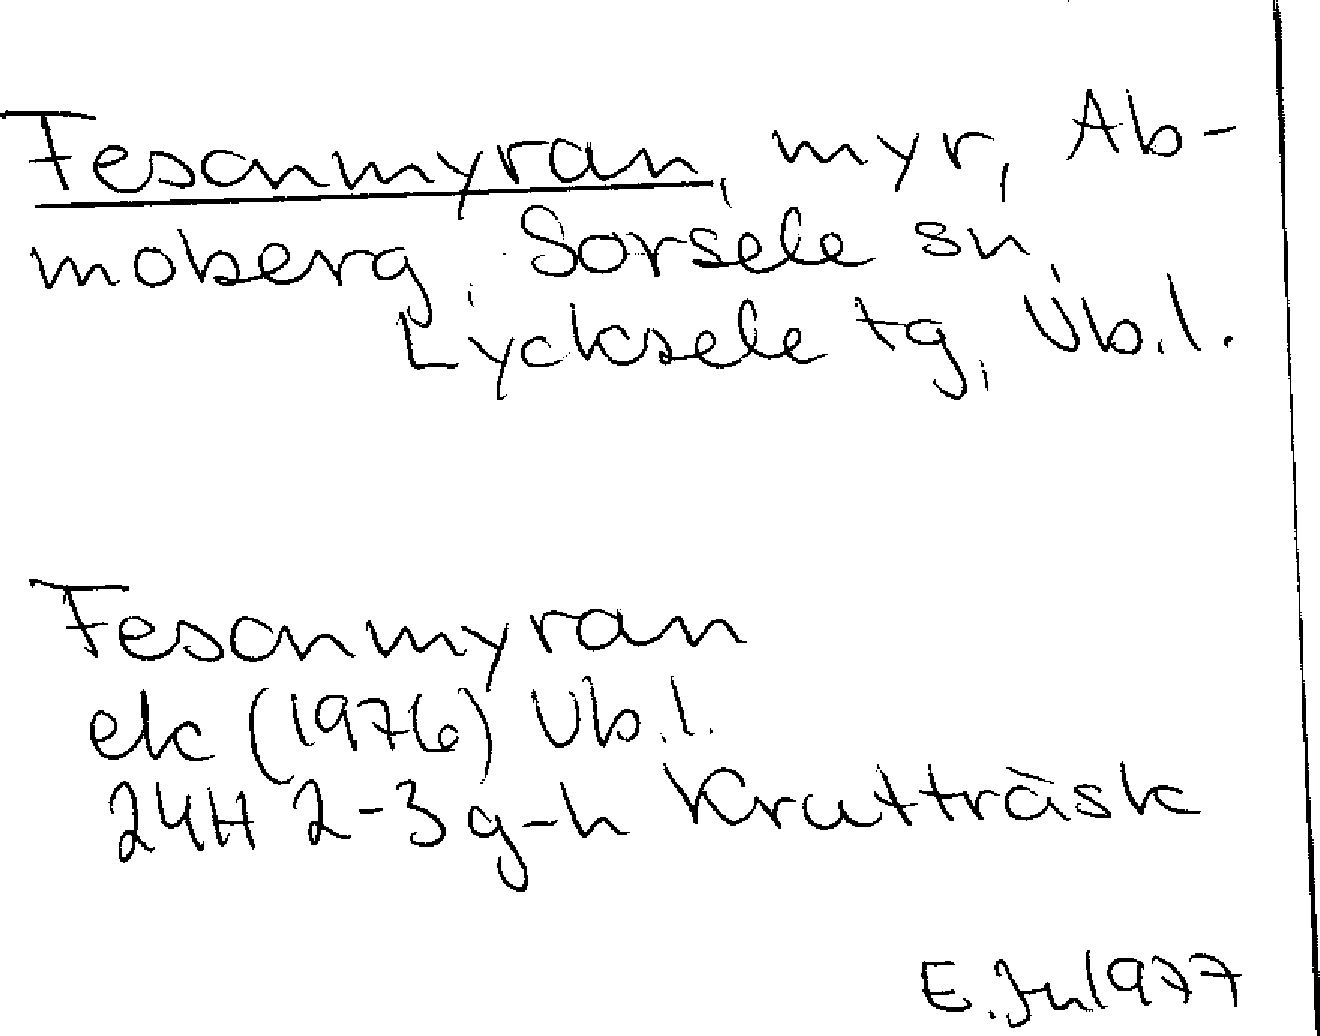 Fesonmyran, myr, Ab-
moberg, Sorsele sn,
Lycksele tg, Vb.l.
Fesonmyran
ek (1976) Vb.l.
24H 2-3 g-h Krutträsk
1977